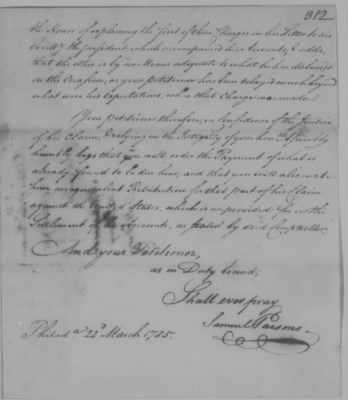 312
the Honor of explaining the first of these Charges in his Letter to his
Excell'y the president, which accompanied his Accounts, & adds,
that the other is by no Means adequate to what he has sustained
on the Occasion, as your petitioner has been delay'd much beyond
what were his Expectations, when that Charge was made.
Your petitioner therefore, in Confidence of the Justice
of his Claim, & relying on the Integrity of your hon'ble Assembly
humbly begs that you will order the Payment of what is
already found to be due him, and that you will also make
him an equivalent Retribution for that part of his Claim
against the United States, which is unprovided for in the
Settlement of his Accounts, as stated by said Comptroller.
And your Petitioner,
as in Duty bound,
Shall ever pray
Samuel Parsons
Philad'a 22d March 1785.